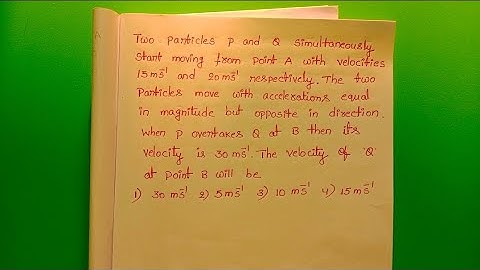 Two particles P and Q simultaneously
start moving from point A with velocities
15 ms⁻¹ and 20 ms⁻¹ respectively. The two
Particles move with accelerations equal
in magnitude but opposite in direction.
When P overtakes Q at B then its
velocity is 30 ms⁻¹. The velocity of 'Q'
at point B will be
1) 30 ms⁻¹ 2) 5 ms⁻¹ 3) 10 ms⁻¹ 4) 15 ms⁻¹